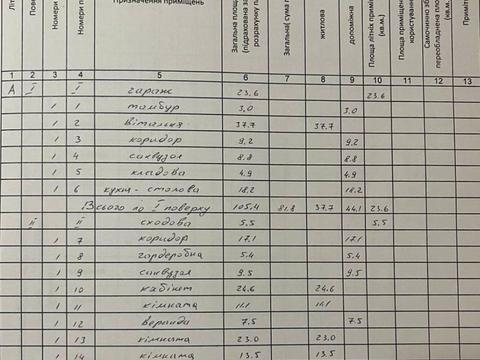 Номери
Номери п
Призначення приміщень
Загальна
розрахунку
Загальна( сума
житлова
допоміжна
Площа літніх
(кв.м.)
Площа
користування
Самочинно
переобладнена
(кв.м.)
1 2 3 4 5 6 7 8 9 10 11 12 13
А І І гараж 23.6 23.6
1 1 тамбур 3,0 3.0
1 2 вітальня 37.7 37.7
1 3 коридор 9,2 9.2
1 4 санвузол 8.8 8.8
1 5 кладова 4.9 4.9
1 6 кухня - столова 18.2 18.2
Всього по І поверху 105.4 81.8 37.7 44.1 23.6
ІІ ІІ сходова 5.5 5.5
1 7 коридор 17.1 17.1
1 8 гардеробна 5.4 5.4
1 9 санвузол 9.5 9.5
1 10 кабінет 24.6 24.6
1 11 кімната 11.1 11.1
1 12 веранда 7.5 7.5
1 13 кімната 23.0 23.0
1 14 кімната 13.5 13.5